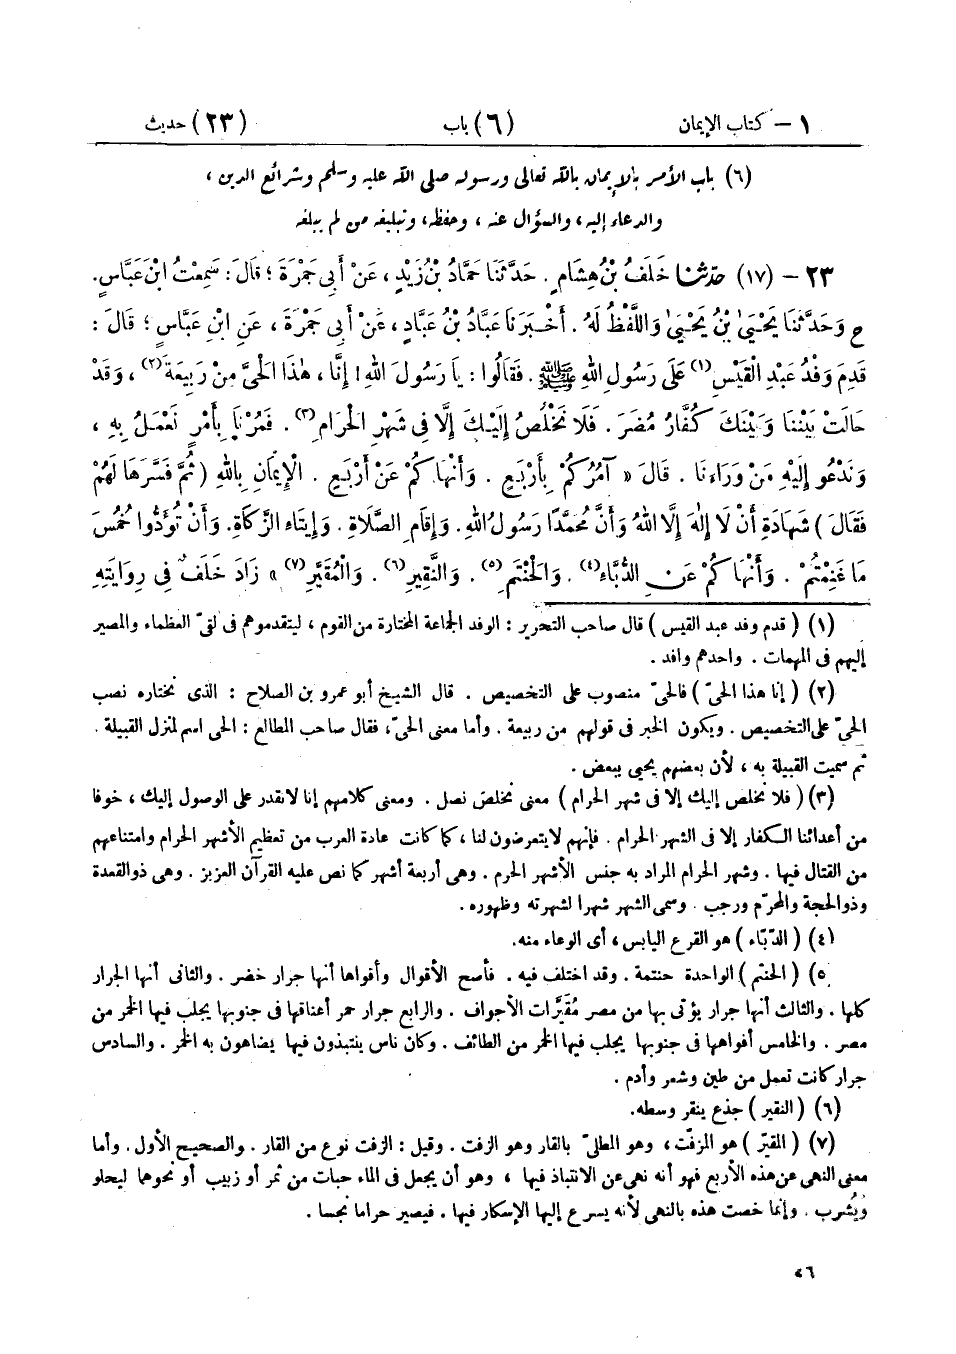 ١ - كتاب الإيمان (٦) باب (٢٣) حديث
(٦) باب الأمر بالإيمان بالله تعالى ورسوله صلى الله عليه وسلم وشرائع الدين ،
والدعاء إليه ، والسؤال عنه ، وحفظه، وتبليغه من لم يبلغه
٢٣ - (١٧) حَدَّثَنَا خَلَفُ بْنُ هِشَامٍ . حَدَّثَنَا حَمَّادُ بْنُ زَيْدٍ ، عَنْ أَبِي جَمْرَةَ ؛ قَالَ : سَمِعْتُ ابْنَ عَبَّاسٍ.
ح وَحَدَّثَنَا يَحْيَىٰ بْنُ يَحْيَىٰ وَاللَّفْظُ لَهُ . أَخْبَرَنَا عَبَّادُ بْنُ عَبَّادٍ ، عَنْ أَبِي جَمْرَةَ ، عَنِ ابْنِ عَبَّاسٍ ؛ قَالَ :
قَدِمَ وَفْدُ عَبْدِ الْقَيْسِ(١) عَلَى رَسُولِ اللهِ ﷺ . فَقَالُوا : يَا رَسُولَ اللهِ ! إِنَّا ، هٰذَا الْحَيَّ مِنْ رَبِيعَةَ(٢) ، وَقَدْ
حَالَتْ بَيْنَنَا وَبَيْنَكَ كُفَّارُ مُضَرَ . فَلَا نَخْلُصُ إِلَيْكَ إِلَّا فِي شَهْرِ الْحَرَامِ(٣) . فَمُرْنَا بِأَمْرٍ نَعْمَلُ بِهِ ،
وَنَدْعُو إِلَيْهِ مَنْ وَرَاءَنَا . قَالَ « آمُرُكُمْ بِأَرْبَعٍ . وَأَنْهَاكُمْ عَنْ أَرْبَعٍ . الْإِيمَانِ بِاللهِ ( ثُمَّ فَسَّرَهَا لَهُمْ
فَقَالَ ) شَهَادَةِ أَنْ لَا إِلٰهَ إِلَّا اللهُ وَأَنَّ مُحَمَّدًا رَسُولُ اللهِ . وَإِقَامِ الصَّلَاةِ . وَإِيتَاءِ الزَّكَاةِ. وَأَنْ تُؤَدُّوا خُمُسَ
مَا غَنِمْتُمْ . وَأَنْهَاكُمْ عَنِ الدُّبَّاءِ(٤) . وَالْحَنْتَمِ(٥) . وَالنَّقِيرِ(٦) . وَالْمُقَيَّرِ(٧) » زَادَ خَلَفٌ فِي رِوَايَتِهِ
(١) ( قدم وفد عبد القيس ) قال صاحب التحرير : الوفد الجماعة المختارة من القوم ، ليتقدموهم فى لقىّ العظماء والمصير
إليهم فى المهمات . واحدهم وافد .
(٢) ( إنا هذا الحىّ ) فالحىّ منصوب على التخصيص . قال الشيخ أبو عمرو بن الصلاح : الذى نختاره نصب
الحىّ على التخصيص . ويكون الخبر فى قولهم من ربيعة . وأما معنى الحىّ ، فقال صاحب المطالع : الحى اسم لمنزل القبيلة .
ثم سميت القبيلة به ، لأن بعضهم يحيى ببعض .
(٣) ( فلا نخلص إليك إلا فى شهر الحرام ) معنى نخلص نصل . ومعنى كلامهم إنا لا نقدر على الوصول إليك ، خوفا
من أعدائنا الكفار إلا فى الشهر الحرام . فإنهم لا يتعرضون لنا ، كما كانت عادة العرب من تعظيم الأشهر الحرام وامتناعهم
من القتال فيها . وشهر الحرام المراد به جنس الأشهر الحرم . وهى أربعة أشهر كما نص عليه القرآن العزيز . وهى ذو القعدة
وذو الحجة والمحرّم ورجب . وسمى الشهر شهرا لشهرته وظهوره .
(٤) ( الدّبّاء ) هو القرع اليابس ، أى الوعاء منه.
(٥) ( الحنتم ) الواحدة حنتمة . وقد اختلف فيه . فأصح الأقوال وأقواها أنها جرار خضر . والثانى أنها الجرار
كلها . والثالث أنها جرار يؤتى بها من مصر مُقَيَّرات الأجواف . والرابع جرار حمر أعناقها فى جنوبها يجلب فيها الخمر من
مصر . والخامس أفواهها فى جنوبها يجلب فيها الخمر من الطائف . وكان ناس ينتبذون فيها يضاهون به الخمر . والسادس
جرار كانت تعمل من طين وشعر وأدم .
(٦) ( النقير ) جذع ينقر وسطه.
(٧) ( المقيّر ) هو المزفّت ، وهو المطلىّ بالقار وهو الزفت . وقيل : الزفت نوع من القار . والصحيح الأول . وأما
معنى النهى عن هذه الأربع فهو أنه نهى عن الانتباذ فيها ، وهو أن يجعل فى الماء حبات من تمر أو زبيب أو نحوهما ليحلو
ويُشرب . وإنما خصت هذه بالنهى لأنه يسرع إليها الإسكار فيها . فيصير حراما نجسا .
٤٦